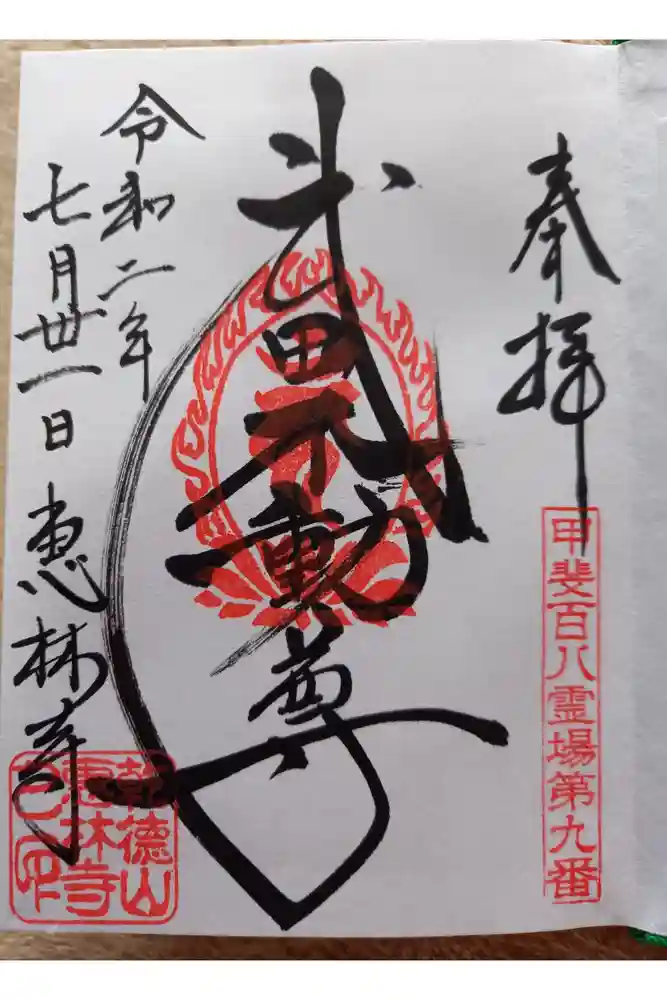 奉拝
甲斐百八霊場第九番
武田不動尊
令和二年
七月廿一日 恵林寺
乾徳山
恵林寺